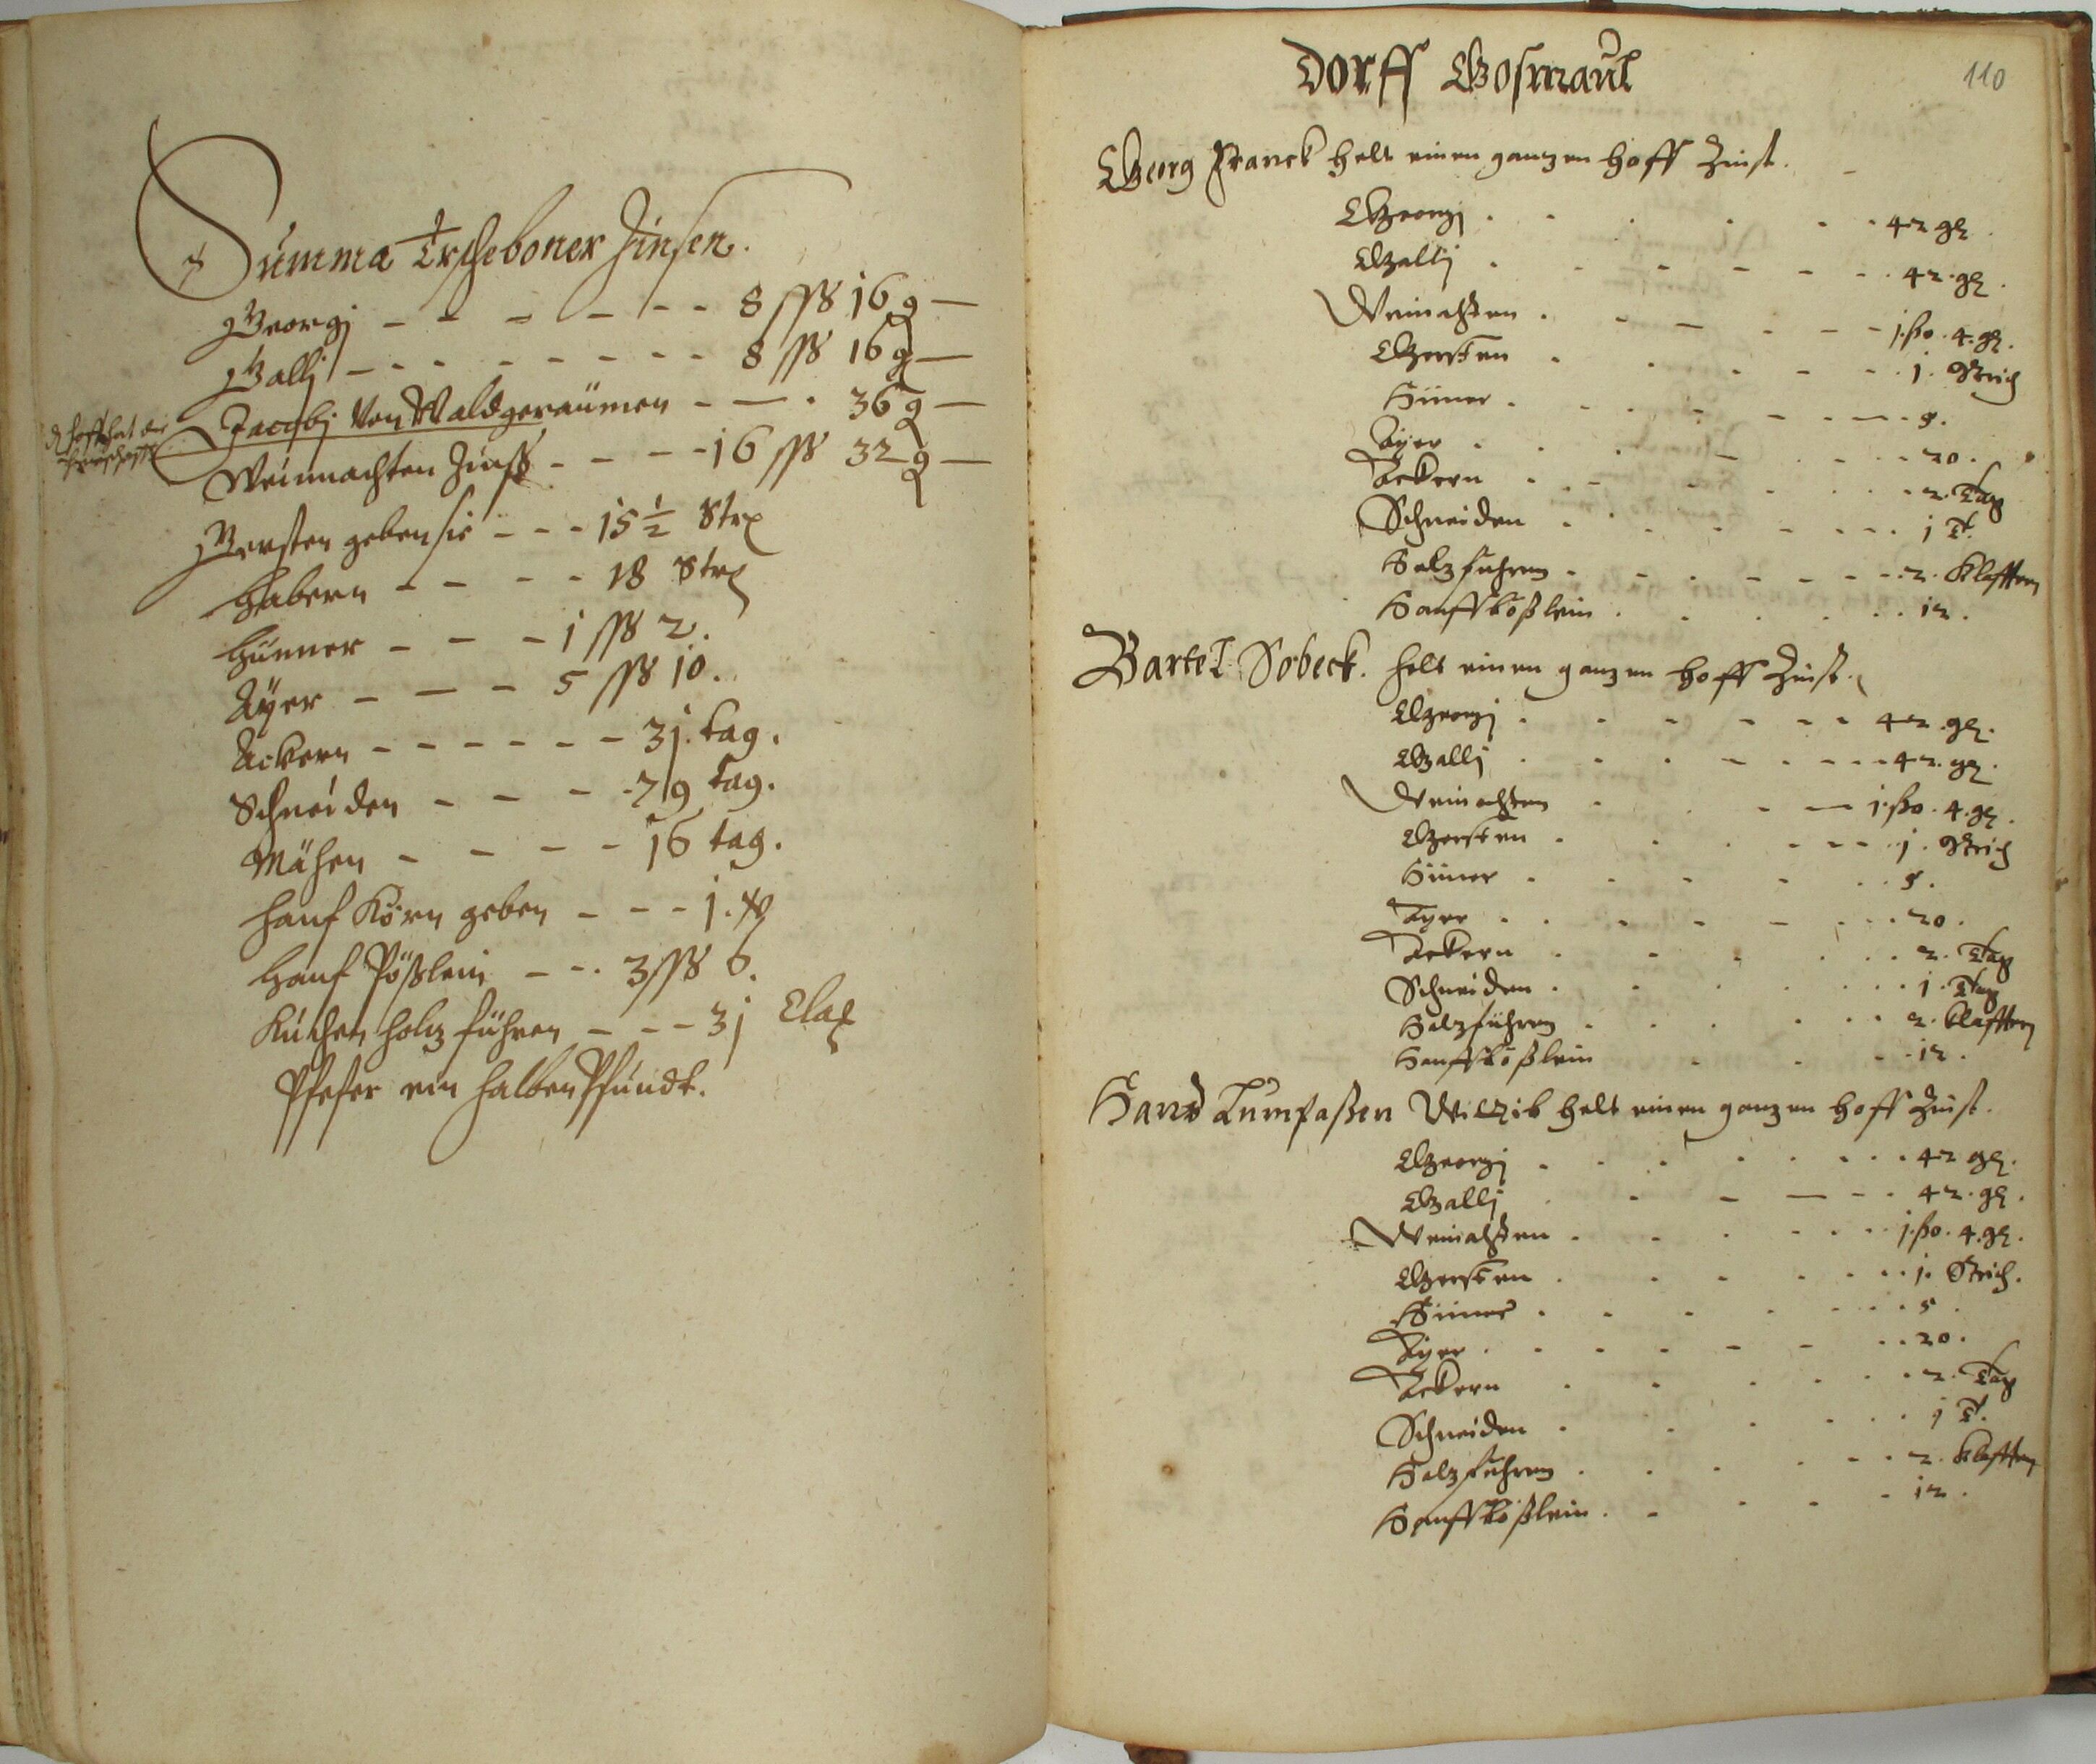 Summa Trscheboner Zinsen.
Georgj - - - - - - 8 ßß 16 g
Gallj - - - - - - - - 8 ßß 16 g
Jacobj Von Waldgeraümen - - . 36 g
Weinnachten Zinß - - - - 16 ßß 32 g
Gersten geben sie - - - 15 1/2 Str
Habern - - - - 18 Str
Hünner - - - 1 ßß 2.
Ayer - - - 5 ßß 10.
Ackern - - - - - - 3j. tag.
Schneiden - - - - 79 tag.
Mähen - - - - 16 tag.
Hanf Körn geben - - - j.
Hanf Pößlein - - . 3 ßß 6.
Küchen holz führen - - - 3j Claf
Pfefer ein halben Pfundt.
110
Dorff Gosmaul
Georg Franck helt einen ganzen Hoff Zinst.
Georgj . . . . . . 42 gl.
Gallj . . . . . . 42. gl.
Weinachten . . . . . j. ßo. 4. gl.
Gersten . . . . . j. Strich
Hüner . . . . . 5.
Ayer . . . . . 20.
Ackern . . . . . 2. Tag
Schneiden . . . . . j T.
Holzfuhren . . . . . 2. Klafftern
Hanffbößlein . . . . . 12.
Bartel Sobeck. helt einen ganzen Hoff Zinst.
Georgj . . . . . . 42. gl.
Gallj . . . . . . 42. gl.
Weinachten . . . . j. ßo. 4. gl.
Gersten . . . . . j. Strich
Hüner . . . . . 5.
Ayer . . . . . 20.
Ackern . . . . . 2. Tag
Schneiden . . . . . j. Tag
Holzführen . . . . . 2. Klafftern
Hanffbößlein . . . . 12.
Hans Lumpaßen Wittib helt einen ganzen Hoff Zinst.
Georgj . . . . . . 42 gl.
Gallj . . . . . . 42. gl.
Weinachten . . . . . j. ßo. 4. gl.
Gersten . . . . . j. Strich.
Hüner . . . . . 5.
Ayer . . . . . 20.
Ackern . . . . . 2. Tag
Schneiden . . . . . j T.
Holzfuhren . . . . . 2. Klafftern
Hanffbößlein . . . . . 12.